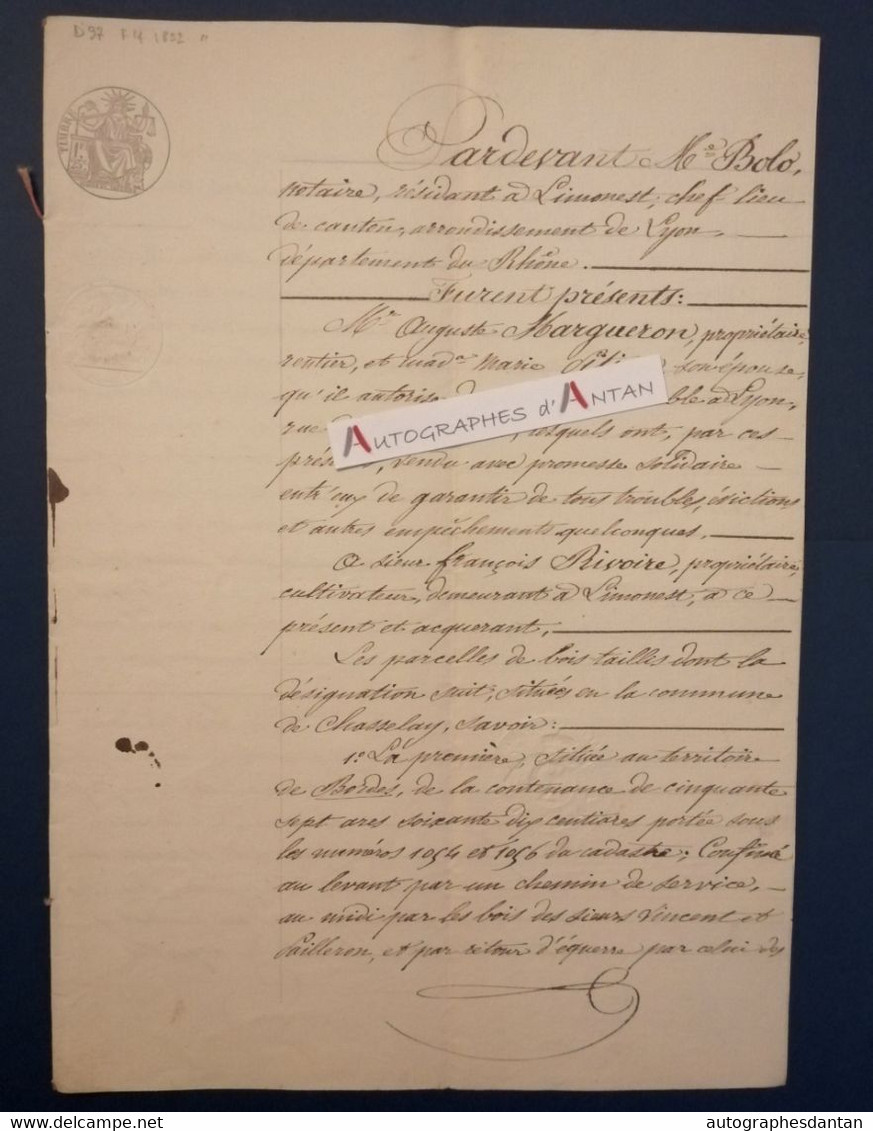 D 97 F 4 1892 "
TIMBRE
Pardevant Me Bolo,
notaire, résidant à Limonest, chef-lieu
de canton, arrondissement de Lyon,
département du Rhône.
Furent présents:
Mr Auguste Margueron, propriétaire,
rentier, et made Marie son épouse,
qu'il autorise à Lyon,
rue lesquels ont, par ces
vendu avec promesse solidaire
entr'eux de garantir de tous troubles, évictions
et autres empêchements quelconques,
A sieur françois Rivoire, propriétaire,
cultivateur, demeurant à Limonest, à ce
présent et acquerant,
Les parcelles de bois tailles dont la
désignation suit, situées en la commune
de Chasselay, savoir:
1º La première, située au territoire
de Bordes, de la contenance de cinquante
sept ares soixante dix centiares portée sous
les numéros 1054 et 1056 du cadastre; Confiné
au levant par un chemin de service,
au midi par les bois des sieurs Vincent et
Pailleron, et par retour d'équerre par celui des
AUTOGRAPHES d'ANTAN
delcampe.net
autographesdantan